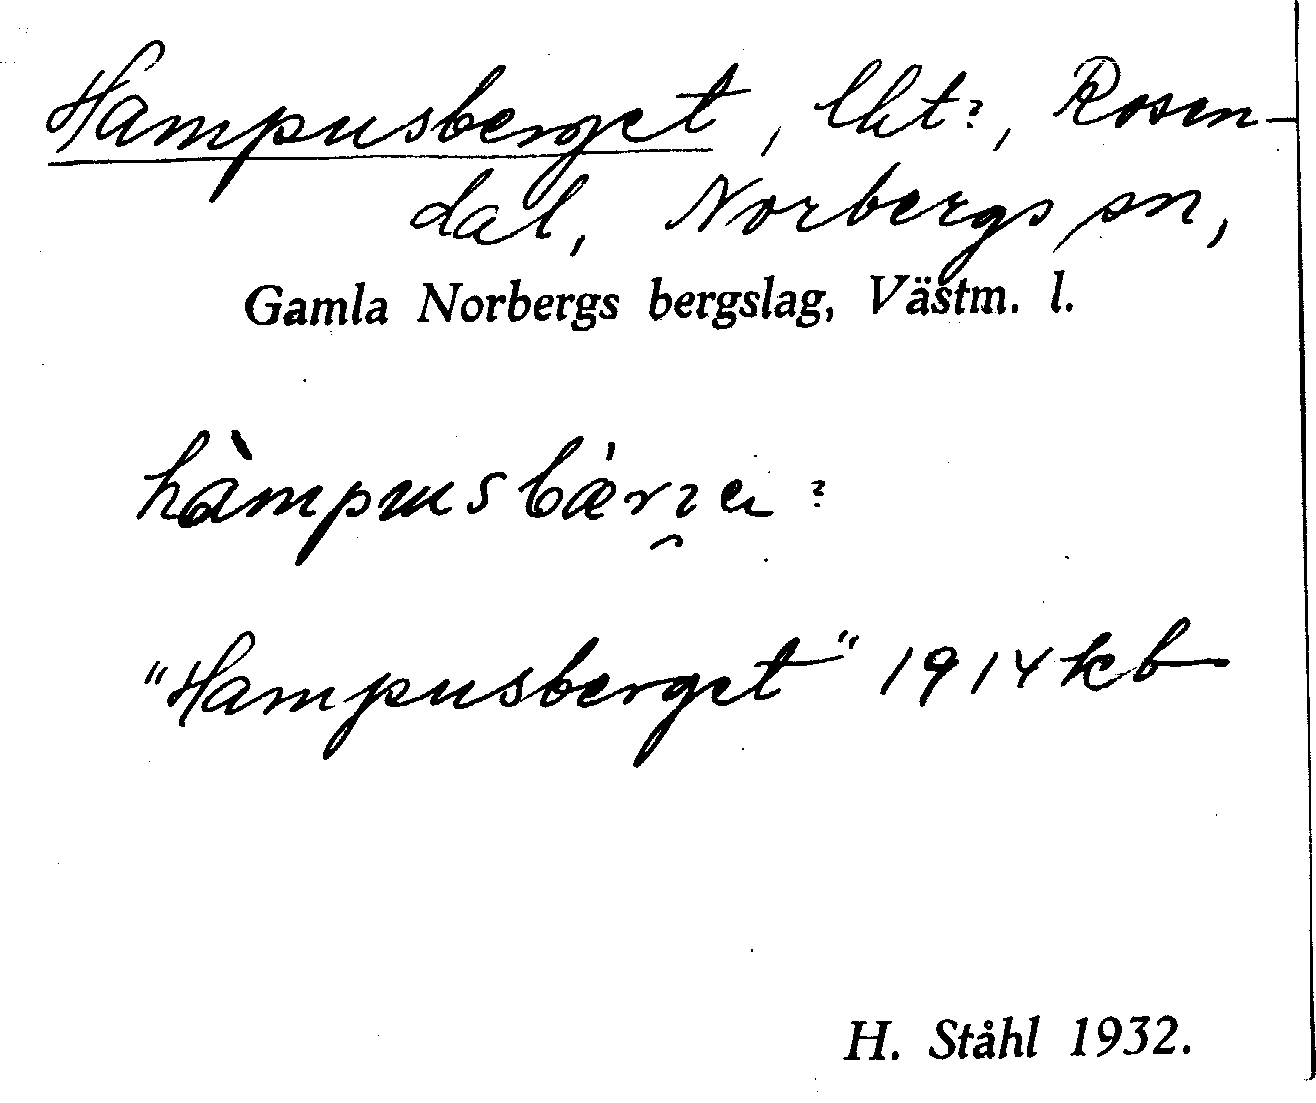 Hampusberget, lht?, Rosen-
dal, Norbergs sn,
Gamla Norbergs bergslag, Västm. l.
"Hampusberget" 1914 kb
H. Ståhl 1932.